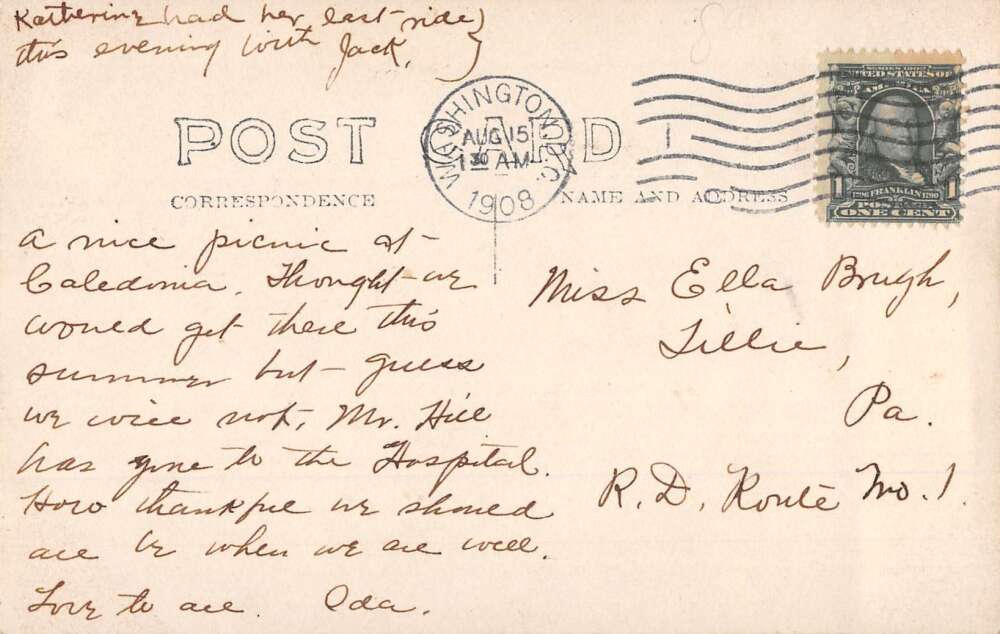 Katherine had her last ride
this evening with Jack.
POST CARD
CORRESPONDENCE
NAME AND ADDRESS
WASHINGTON, D.C.
AUG 15
1 30 AM
1908
SERIES 1902
UNITED STATES OF
AMERICA
FRANKLIN
1706 1790
1 1
POSTAGE
ONE CENT
a nice picnic at
Caledonia. Thought we
would get there this
summer but guess
we will not. Mr. Hill
has gone to the Hospital.
How thankful we should
all be when we are well.
Love to all. Ida.
Miss Ella Brugh,
Lillie,
Pa.
R.D. Route No. 1.